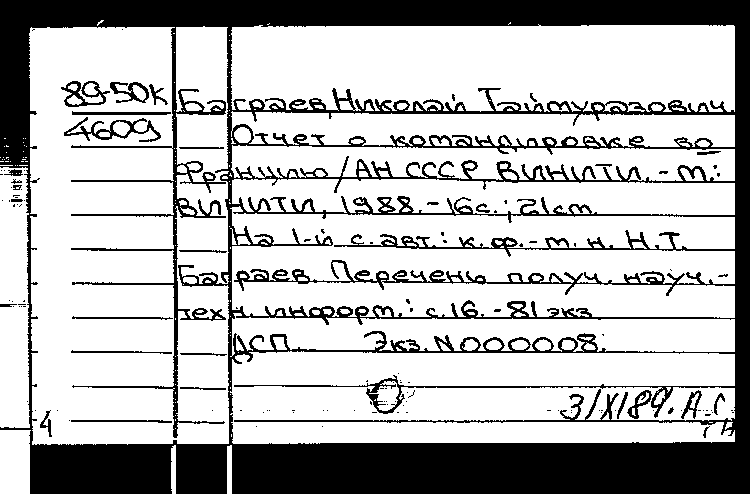 89-50К Баграев, Николай Таймуразович.
4609 Отчет о командировке во
Францию / АН СССР, ВИНИТИ. - М.:
ВИНИТИ, 1988. - 16с.; 21см.
На 1-й с. авт.: к. ф.-м. н. Н.Т.
Баграев. Перечень получ. науч.-
техн. информ.: с.16. - 81 экз.
ДСП Экз. N000008.
3/XI89. А.С
ТН
4